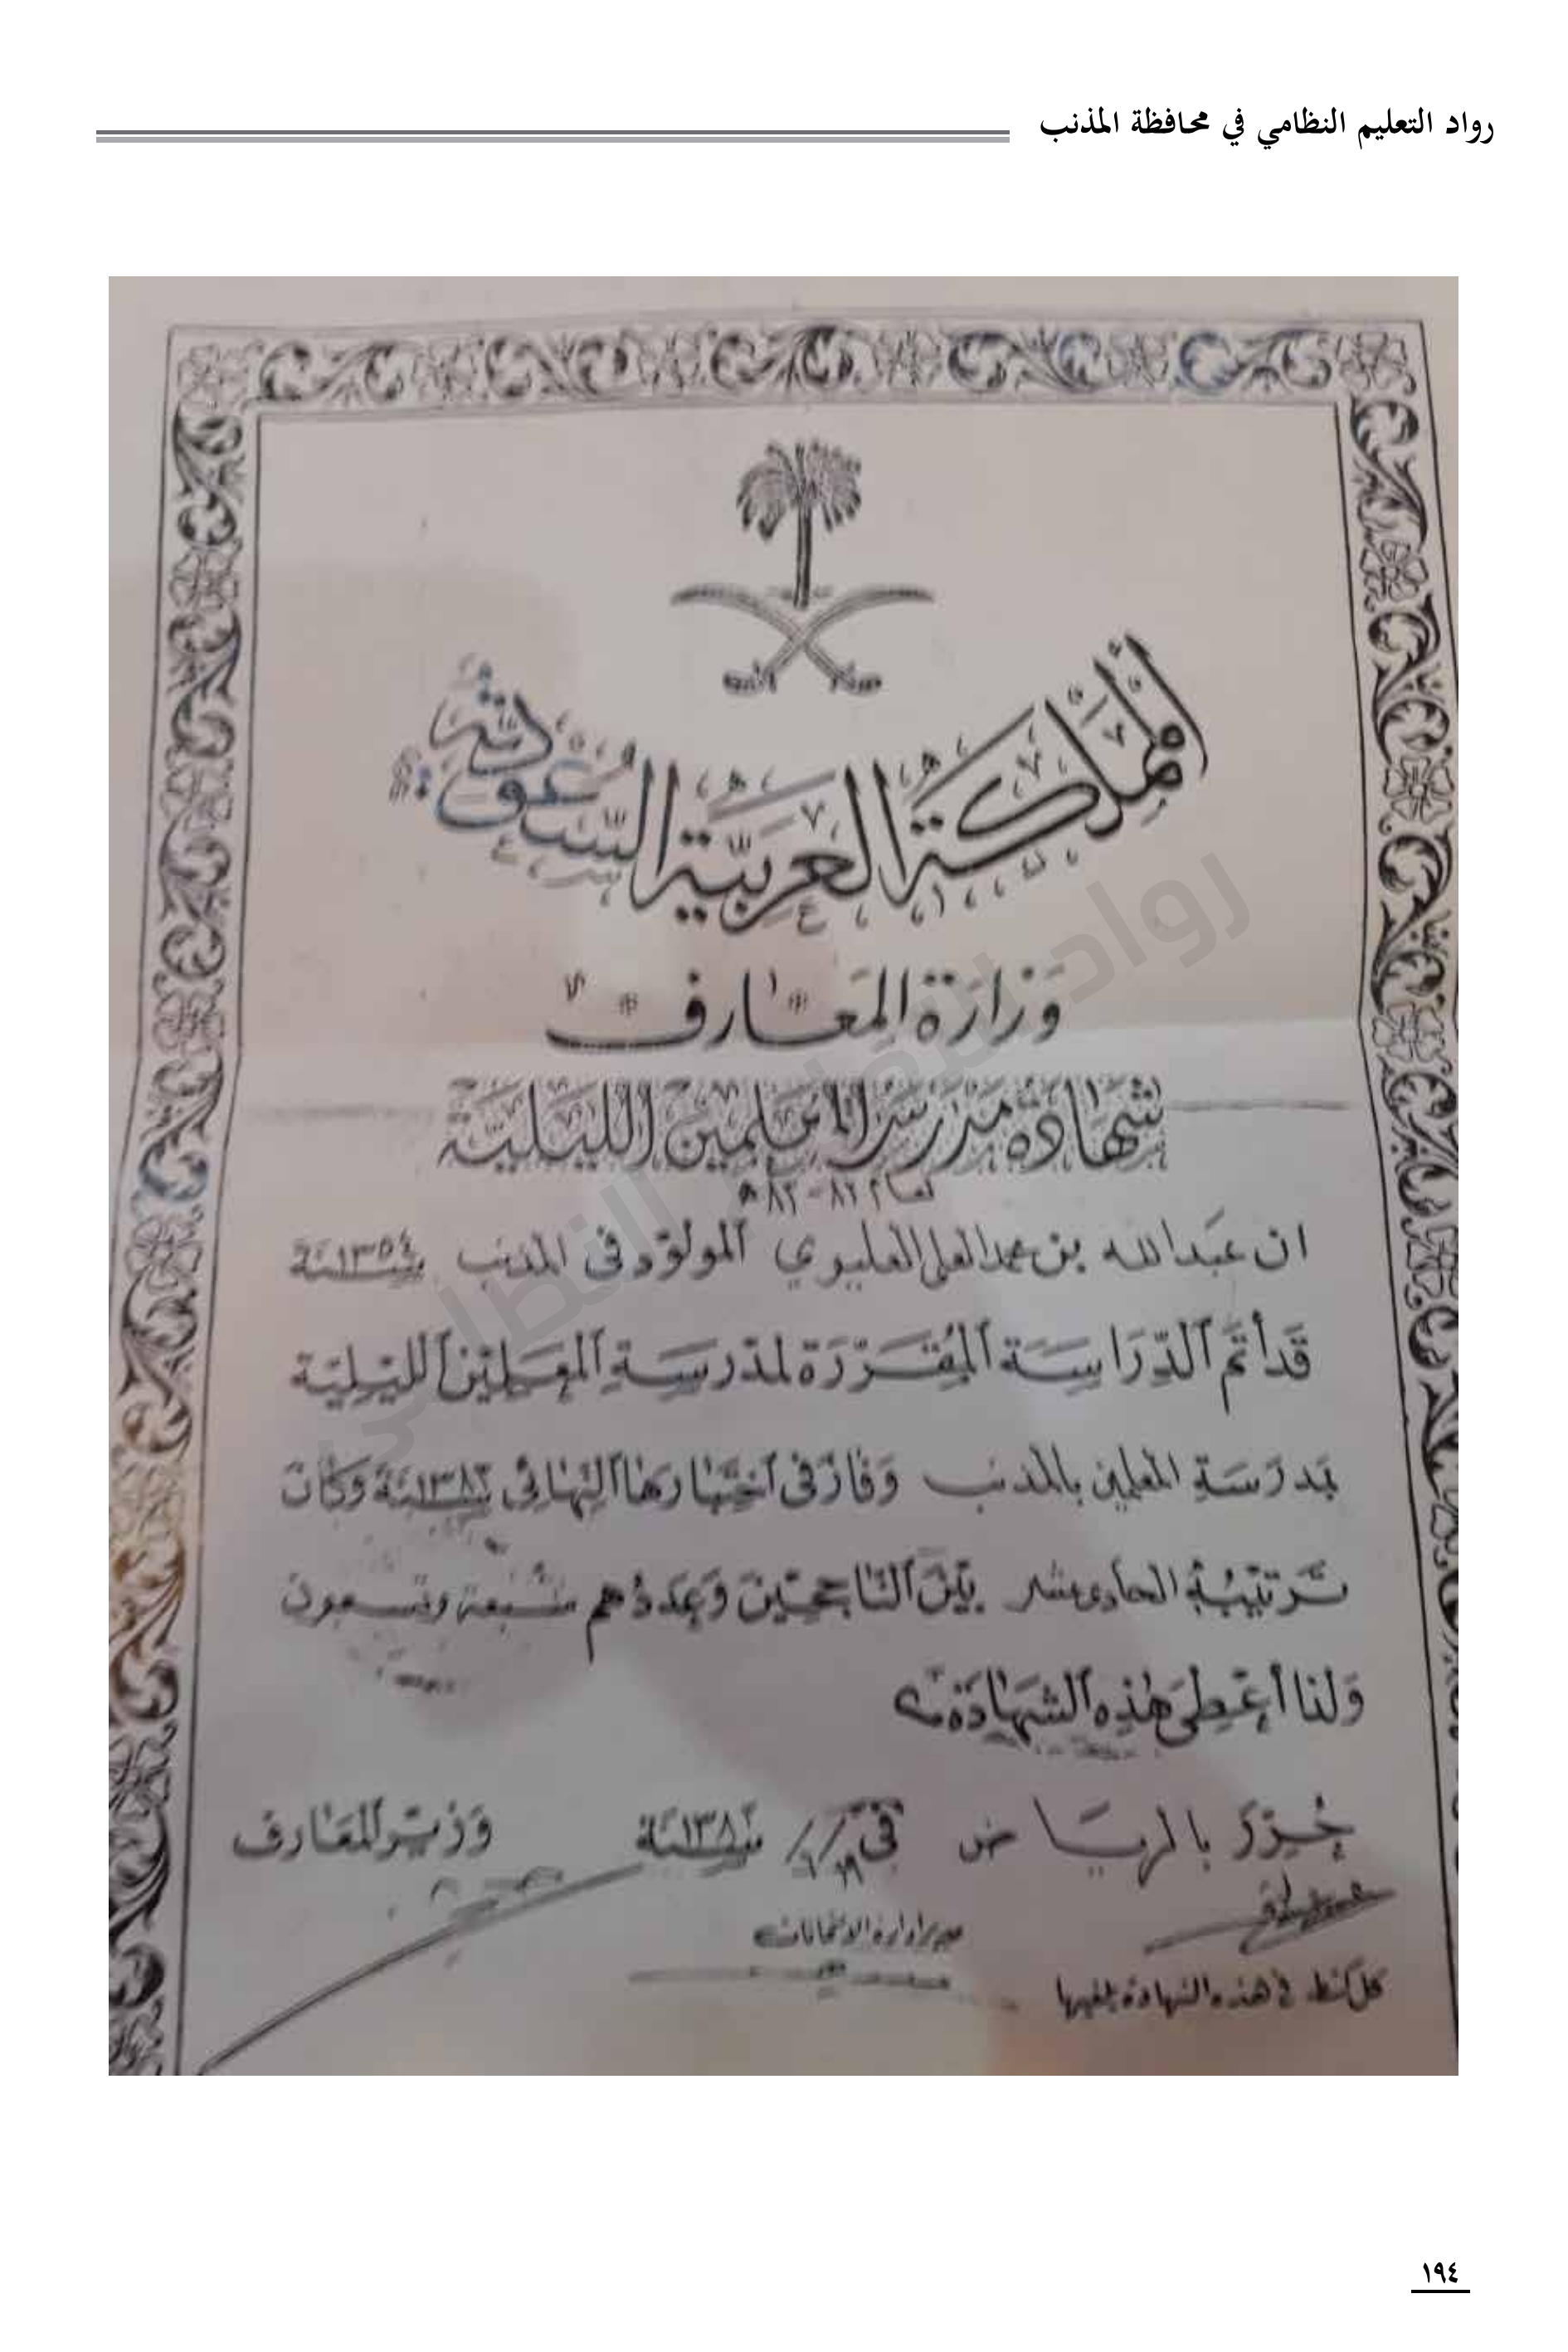 رواد التعليم النظامي في محافظة المذنب
المملكة العربية السعودية
وزارة المعارف
شهادة مدرسة المعلمين الليلية
لعام ٨٢-٨٣ هـ
ان عبدالله بن محمد العلي العليوي المولود في المذنب سنة ١٣٥٤
قد أتم الدراسة المقررة لمدرسة المعلمين الليلية
بمدرسة المعلمين بالمذنب وفاز في اختبارها النهائي سنة وكان
ترتيبه الحادي عشر بين الناجحين وعددهم سبعة وتسعون
ولذا أعطي هذه الشهادة
حرر بالرياض في سنة وزير المعارف
مدير إدارة الامتحانات
كل كشط في هذه الشهادة يلغيها
رواد التعليم النظامي
١٩٤